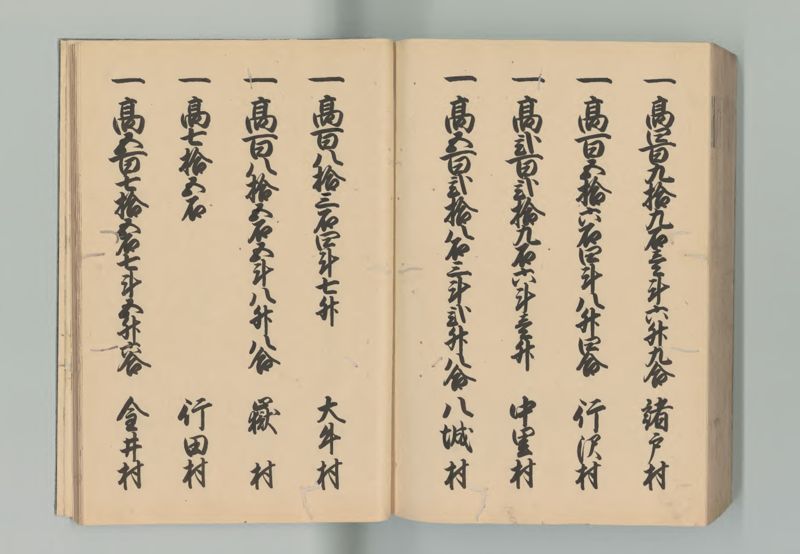 一 高三百九拾九石壱斗六升九合 諸戸村
一 高百五拾六石四斗八升四合 行沢村
一 高弐百弐拾九石六斗壱升 中里村
一 高五百弐拾八石三斗弐升八合 八城村
一 高百八拾三石四斗七升 大牛村
一 高百八拾五石五斗八升八合 嶽村
一 高七拾五石 行田村
一 高五百七拾五石七斗五升六合 金井村